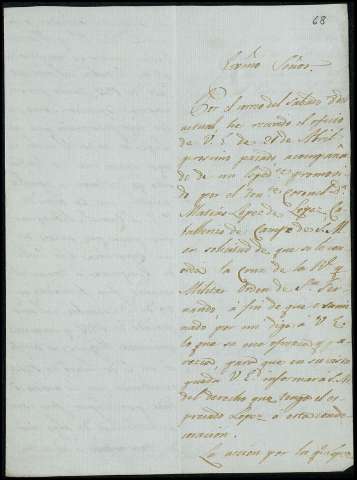 68
Exmo Señor.
Por el correo del Sabado dos
actual, he recivido el oficio
de V. E. de 21 de Abril
proximo pasado acompañan
do de un Esped.te promovi
do por el Ten.te Coronel D.n
Matias Lopez de Lopez Ca
ballerizo de Campo de S. M.
en solicitud de que se le con
ceda la Cruz de la R.l y
Militar Orden de S.n Fer
nando, á fin de que exami
nado por mi diga á V. E.
lo que se me ofrezca y pa
rezca para que en su vista
pueda V. E. informar á S. M.
del derecho que tenga el es
presado Lopez á esta conde
coracion.
La accion por la q.e Lopez